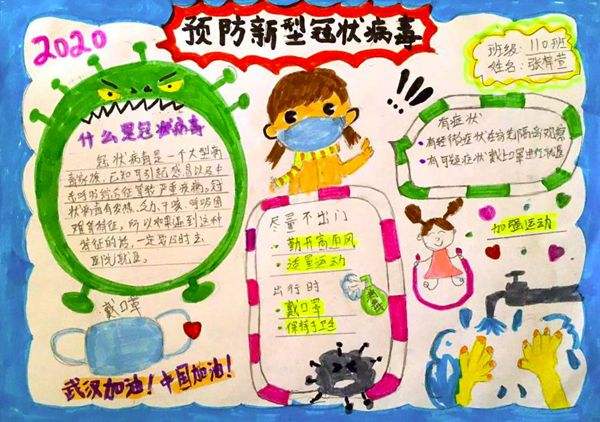 2020
预防新型冠状病毒
班级：110班
姓名：张
什么是冠状病毒
冠状病毒是一个大型病
毒家族,已知可引起感冒以及中
东呼吸综合征等较严重疾病。冠
状病毒有发烧、乏力、干咳、呼吸困
难等特征,所以如果遇到这种
特征的话,一定要及时去
医院就医。
有症状
·有轻微症状在家先隔离观察
·有可疑症状戴上口罩
尽量不出门
·勤开窗通风
·适量运动
出行时
·戴口罩
·保持手卫生
加强运动
戴口罩
武汉加油！中国加油！